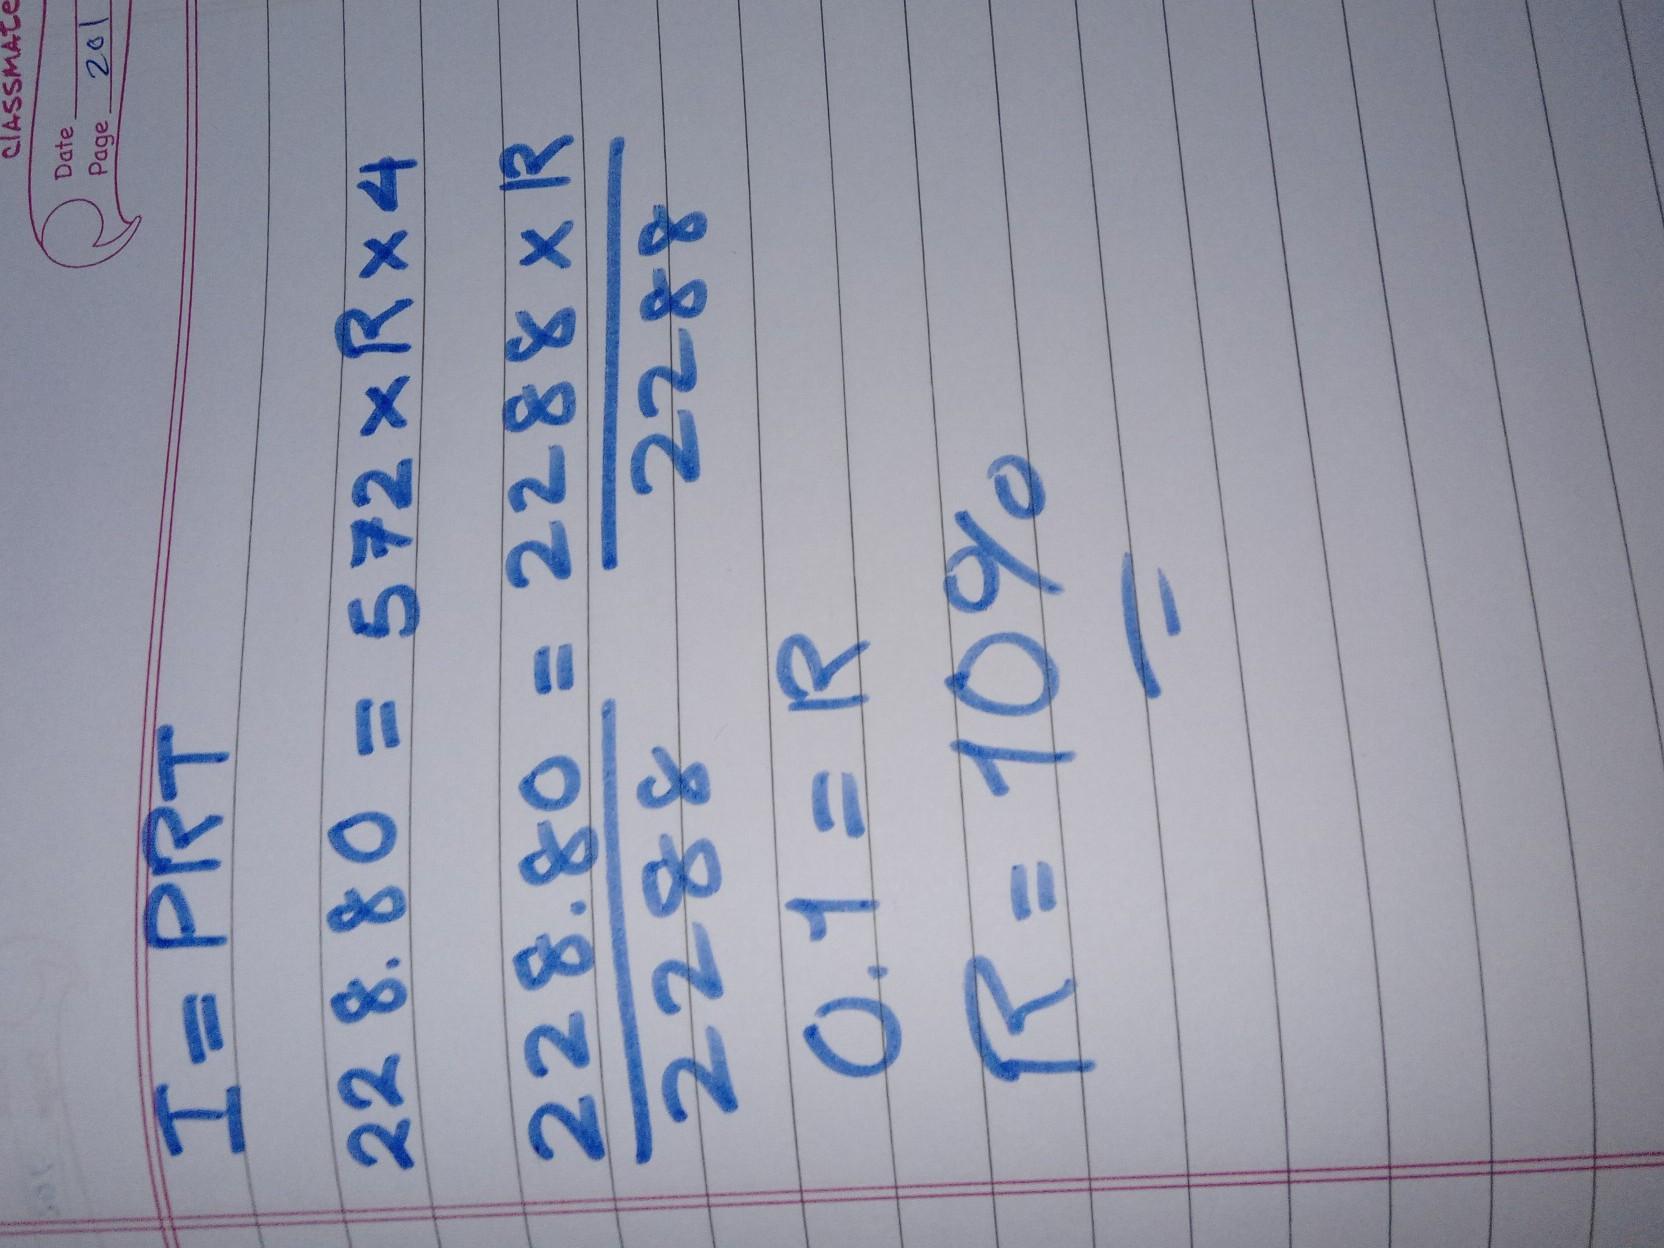 classmate
Date
Page 201
I = PRT
228.80 = 572 x R x 4
228.80 = 2288 x R
2288 2288
0.1 = R
R = 10%